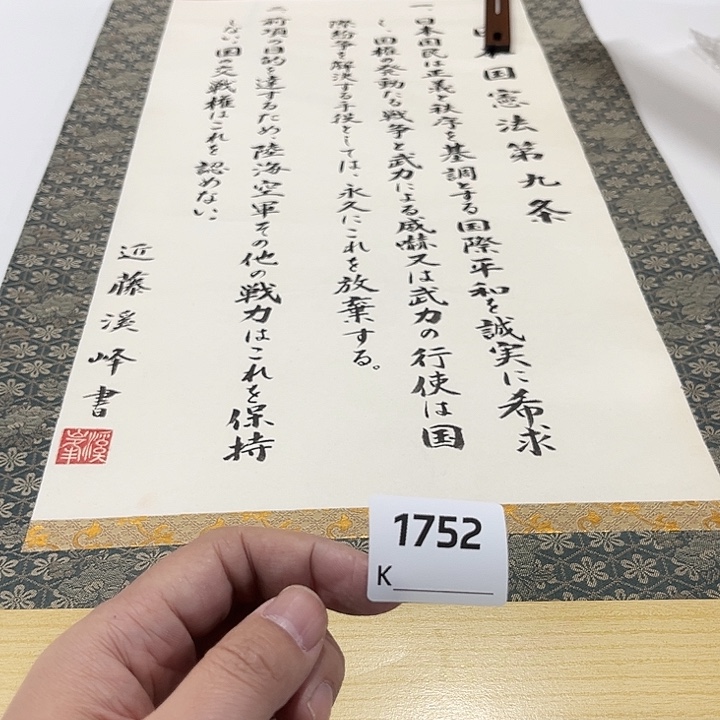 日本国憲法第九条
一、日本国民は正義と秩序を基調とする国際平和を誠実に希求
し、国権の発動たる戦争と武力による威嚇又は武力の行使は国
際紛争を解決する手段としては、永久にこれを放棄する。
二、前項の目的を達するため、陸海空軍その他の戦力はこれを保持
しない。国の交戦権はこれを認めない。
近藤溪峰書
溪峯
1752
K